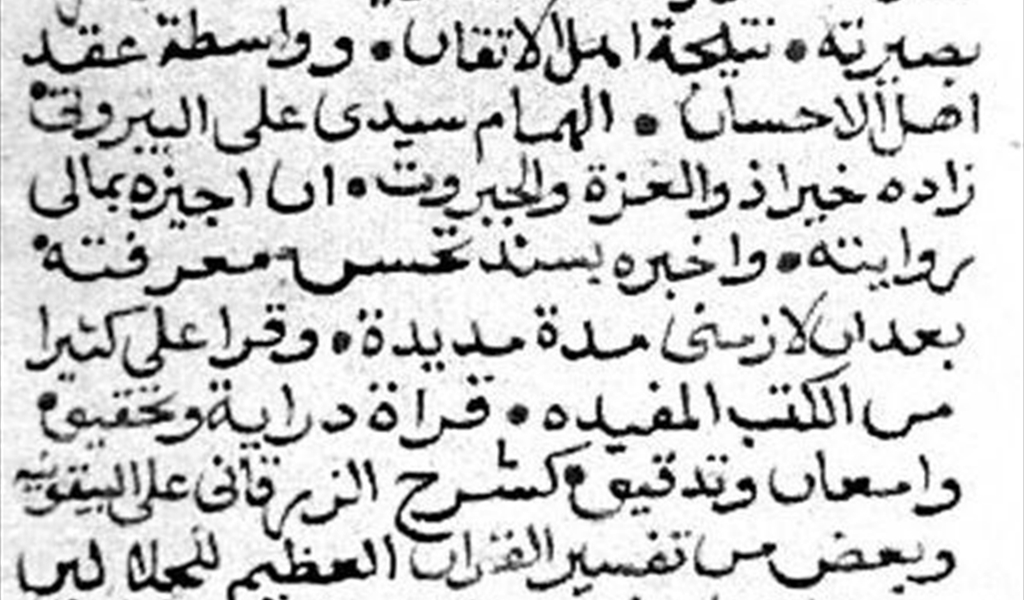 بصيرته • نتيجة اهل الاتقان • وواسطة عقد
اهل الاحسان • الهمام سيدى على البيروتي •
زاده خيرا ذو العزة والجبروت • ان اجيزه بمالى
روايته • واخبره بسند تحسن معرفته •
بعد ان لازمنى مدة مديدة • وقرا على كثيرا
من الكتب المفيده • قراة دراية وتحقيق •
وامعان وتدقيق • كشرح الزرقانى على البيقونيه
وبعض من تفسير القران العظيم للجلالين